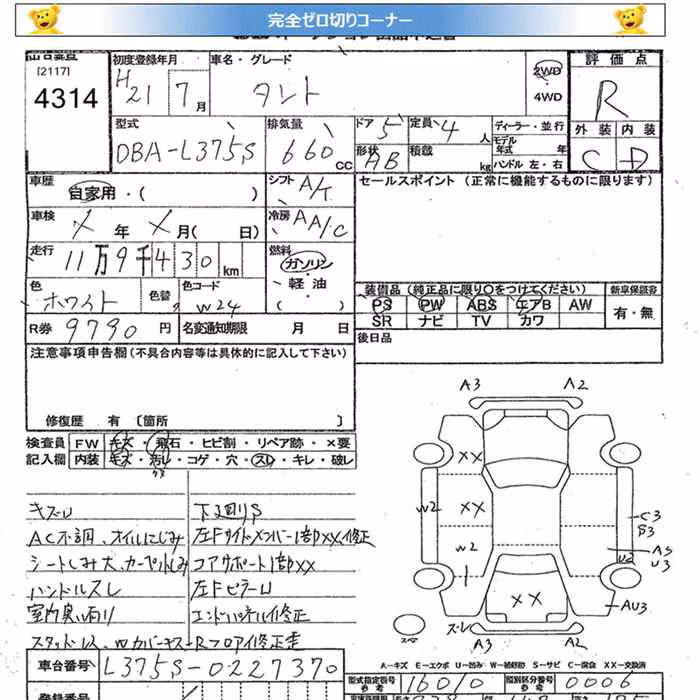 完全ゼロ切りコーナー
[2117]
4314
初度登録年月
H21 7月
車名・グレード
タント
2WD
4WD
評価点
R
外装 内装
C D
型式
DBA-L375S
排気量
660 CC
ドア 5
形状 AB
定員 4 人
積載 kg
ディーラー・並行
モデル年式 年
ハンドル 左・右
車歴
自家用・( )
シフト A/T
車検
X 年 X 月( 日)
冷房 AA/C
走行
11万9千430 km
燃料
ガソリン
・軽油
( )
色
ホワイト
色替
色コード
W24
R券 9790 円
名変通知期限 月 日
セールスポイント (正常に機能するものに限ります)
装備品 (純正品に限り○をつけてください)
新車保証書
PS PW ABS エアB AW
SR ナビ TV カワ
有・無
後日品
注意事項申告欄(不具合内容等は具体的に記入して下さい)
修復歴 有 〔箇所 〕
検査員 FW キズ・飛石・ヒビ割・リペア跡・×要
記入欄 内装 キズ・汚レ・コゲ・穴・スレ・キレ・破レ
キズU
AC不調、オイルにじみ
シートしみ大、カーペットしみ
ハンドルスレ
室内臭い有り
下廻りS
左Fサイドメンバー1部XX、修正
コアサポート1部XX
左FピラーU
エンドパネル修正
Rフロアイ修正歪
A3 A2
XX
XX
W2
W2
XX
C3
S3
A5
U3
U2
AU3
スレ
A3 A2
A-キズ E-エクボ U-凹み W-補修跡 S-サビ C-腐食 XX-交換済
車台番号 L375S-0227370
型式指定番号 参考 16010
類別区分番号 参考 0006
登録番号